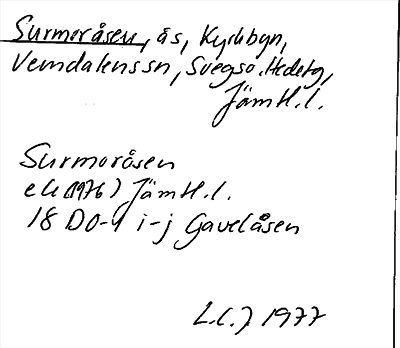 Surmoråsen, ås, Kyrkbyn,
Vemdalenssn, Svegs o. Hedetg,
Jämtl. l.
Surmoråsen
ek (1976) Jämtl. l.
18 D 0-1 i-j Gavelåsen
1977